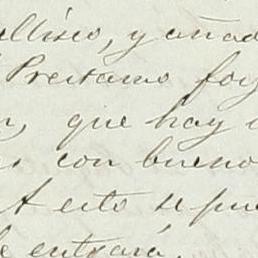 ellisco, y añad
Prestamo foy
n, que hay
con bueno
A esto se pue
le entrará.